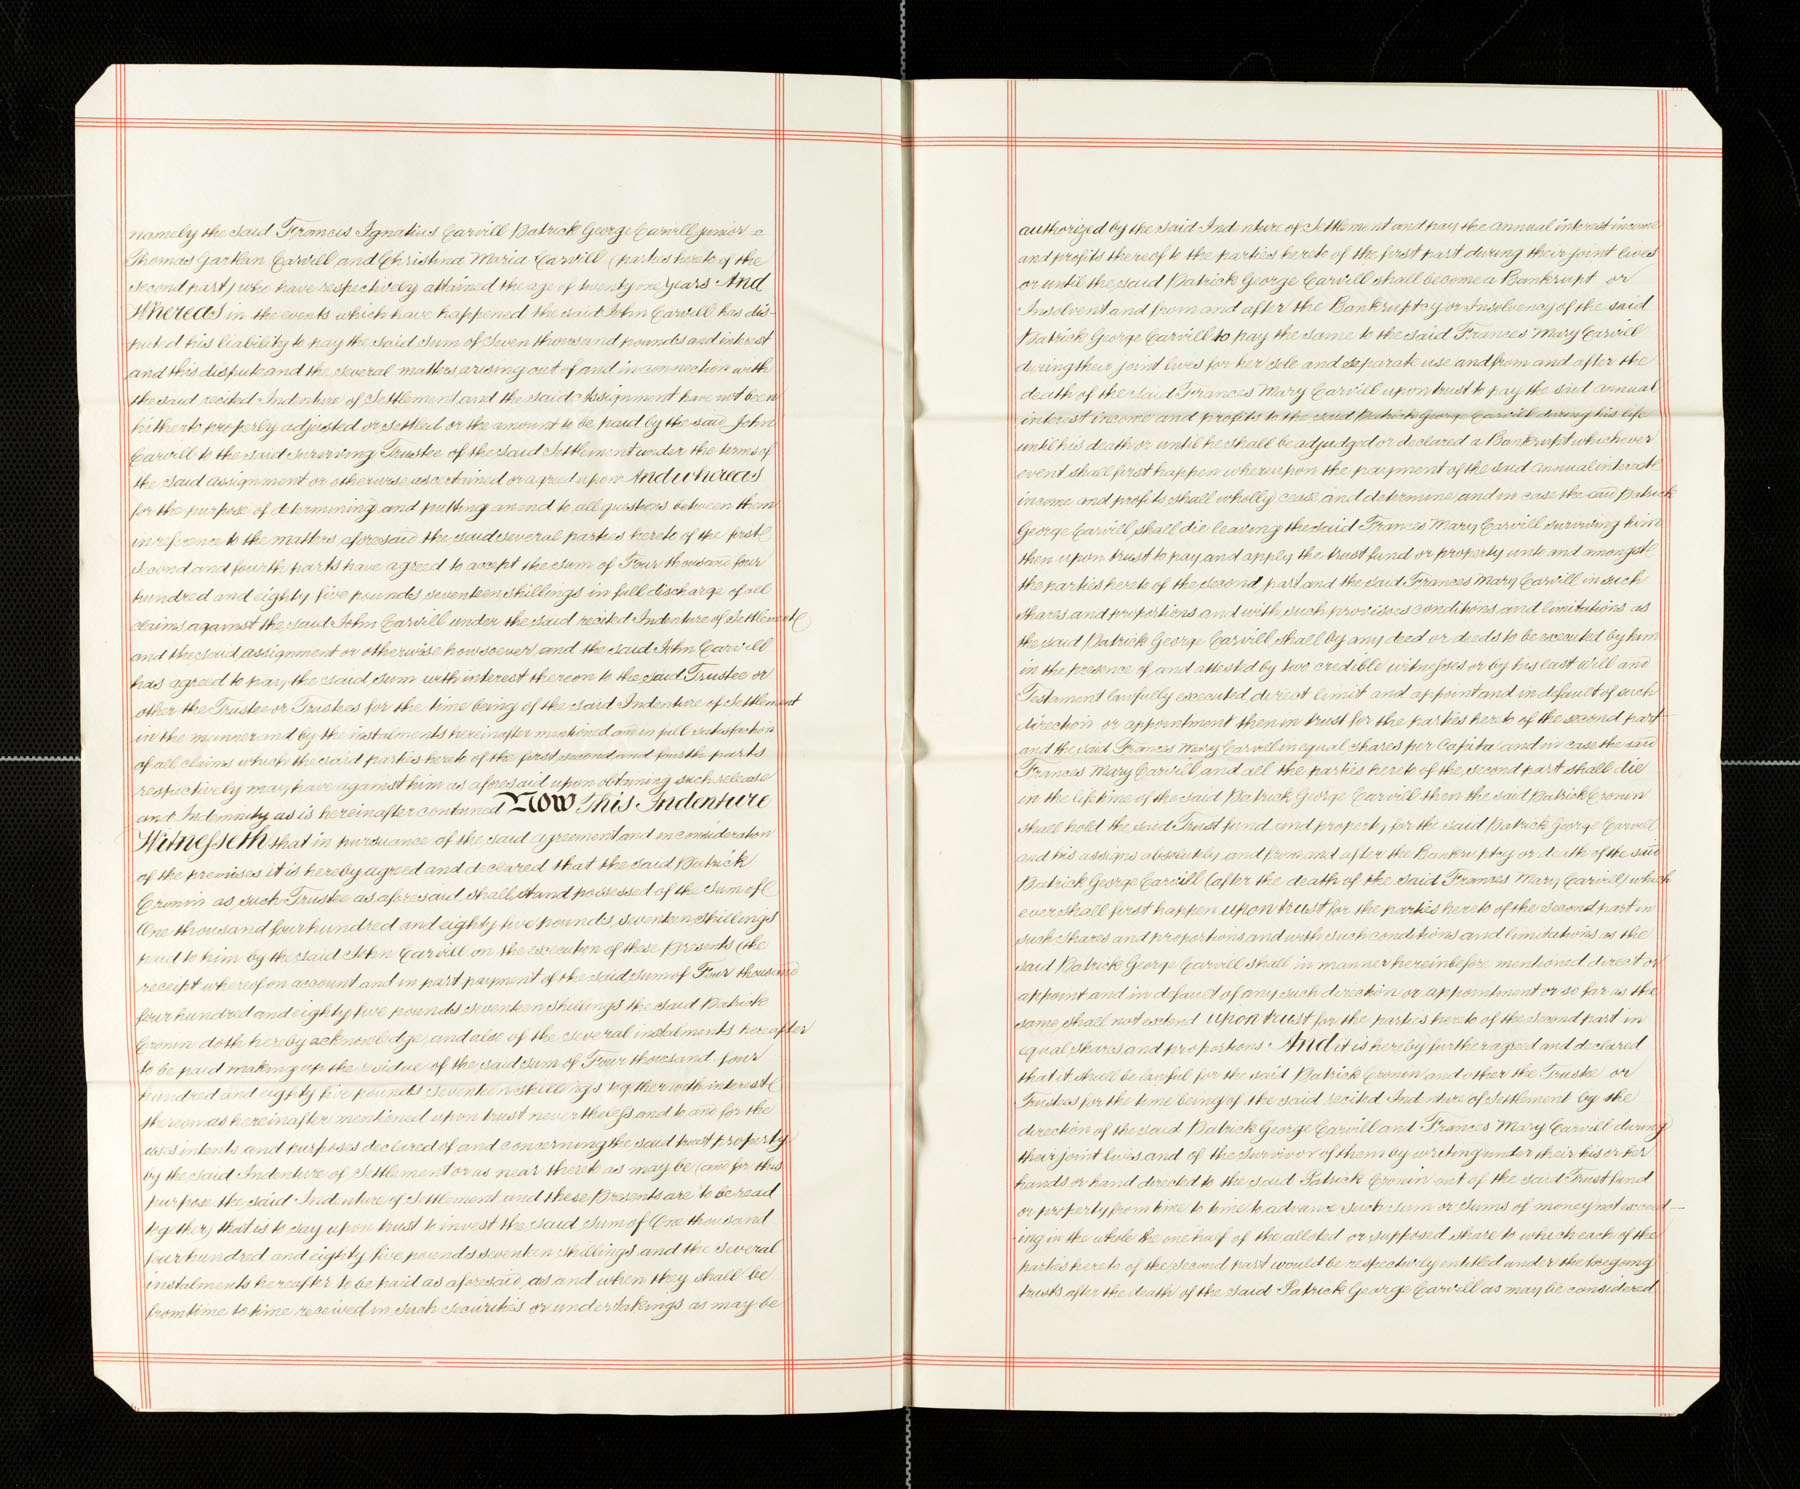 namely the said Francis Ignatius Carvill Patrick George Carvill junior
Thomas Gartlan Carvill and Christina Maria Carvill (parties hereto of the
second part) who have respectively attained the age of twenty one years And
Whereas in the events which have happened the said John Carvill has dis-
puted his liability to pay the said sum of Seven thousand pounds and interest
and this dispute and the several matters arising out of and in connection with
the said recited Indenture of Settlement and the said Assignment have not been
hitherto properly adjusted or settled or the amount to be paid by the said John
Carvill to the said surviving Trustee of the said Settlement under the terms of
the said assignment or otherwise ascertained or agreed upon And whereas
for the purpose of determining and putting an end to all questions between them
in reference to the matters aforesaid the said several parties hereto of the first
second and fourth parts have agreed to accept the sum of Four thousand four
hundred and eighty five pounds seventeen shillings in full discharge of all
claims against the said John Carvill under the said recited Indenture of Settlement
and the said assignment or otherwise howsoever and the said John Carvill
has agreed to pay the said sum with interest thereon to the said Trustee or
other the Trustee or Trustees for the time being of the said Indenture of Settlement
in the manner and by the instalments hereinafter mentioned and in full satisfaction
of all claims which the said parties hereto of the first second and fourth parts
respectively may have against him as aforesaid upon obtaining such release
and Indemnity as is hereinafter contained Now This Indenture
Witnesseth that in pursuance of the said agreement and in consideration
of the premises it is hereby agreed and declared that the said Patrick
Cronin as such Trustee as aforesaid shall stand possessed of the sum of
One thousand four hundred and eighty five pounds seventeen shillings
paid to him by the said John Carvill on the execution of these Presents (the
receipt whereof on account and in part payment of the said sum of Four thousand
four hundred and eighty five pounds seventeen shillings the said Patrick
Cronin doth hereby acknowledge) and also of the several instalments hereafter
to be paid making up the residue of the said sum of Four thousand four
hundred and eighty five pounds seventeen shillings together with interest
thereon as hereinafter mentioned upon trust nevertheless and to and for the
uses intents and purposes declared of and concerning the said trust property
by the said Indenture of Settlement or as near thereto as may be (and for this
purpose the said Indenture of Settlement and these Presents are to be read
together) that is to say upon trust to invest the said sum of One thousand
four hundred and eighty five pounds seventeen shillings and the several
instalments hereafter to be paid as aforesaid, as and when they shall be
from time to time received in such securities or undertakings as may be
authorized by the said Indenture of Settlement and pay the annual interest income
and profits thereof to the parties hereto of the first part during their joint lives
or until the said Patrick George Carvill shall become a Bankrupt or
Insolvent and from and after the Bankruptcy or Insolvency of the said
Patrick George Carvill to pay the same to the said Frances Mary Carvill
during their joint lives for her sole and separate use and from and after the
death of the said Frances Mary Carvill upon trust to pay the said annual
interest income and profits to the said Patrick George Carvill during his life
until his death or until he shall be adjudged or declared a Bankrupt whichever
event shall first happen whereupon the payment of the said annual interest
income and profits shall wholly cease and determine and in case the said Patrick
George Carvill shall die leaving the said Frances Mary Carvill surviving him
then upon trust to pay and apply the trust fund or property unto and amongst
the parties hereto of the second part and the said Frances Mary Carvill in such
shares and proportions and with such provisoes conditions and limitations as
the said Patrick George Carvill shall by any deed or deeds to be executed by him
in the presence of and attested by two credible witnesses or by his last Will and
Testament lawfully executed direct limit and appoint and in default of such
direction or appointment then in trust for the parties hereto of the second part
and the said Frances Mary Carvill in equal shares per Capita and in case the said
Frances Mary Carvill and all the parties hereto of the second part shall die
in the lifetime of the said Patrick George Carvill then the said Patrick Cronin
shall hold the said Trust fund and property for the said Patrick George Carvill
and his assigns absolutely and from and after the Bankruptcy or death of the said
Patrick George Carvill (after the death of the said Frances Mary Carvill) which
ever shall first happen upon trust for the parties hereto of the second part in
such shares and proportions and with such conditions and limitations as the
said Patrick George Carvill shall in manner hereinbefore mentioned direct or
appoint and in default of any such direction or appointment or so far as the
same shall not extend upon trust for the parties hereto of the second part in
equal shares and proportions And it is hereby further agreed and declared
that it shall be lawful for the said Patrick Cronin and other the Trustee or
Trustees for the time being of the said recited Indenture of Settlement by the
direction of the said Patrick George Carvill and Frances Mary Carvill during
their joint lives and of the Survivor of them by writing under their his or her
hands or hand directed to the said Patrick Cronin out of the said Trust fund
or property from time to time to advance such sum or sums of money not exceed-
ing in the whole the one half of the alloted or supposed share to which each of the
parties hereto of the second part would be respectively entitled under the foregoing
trusts after the death of the said Patrick George Carvill as may be considered